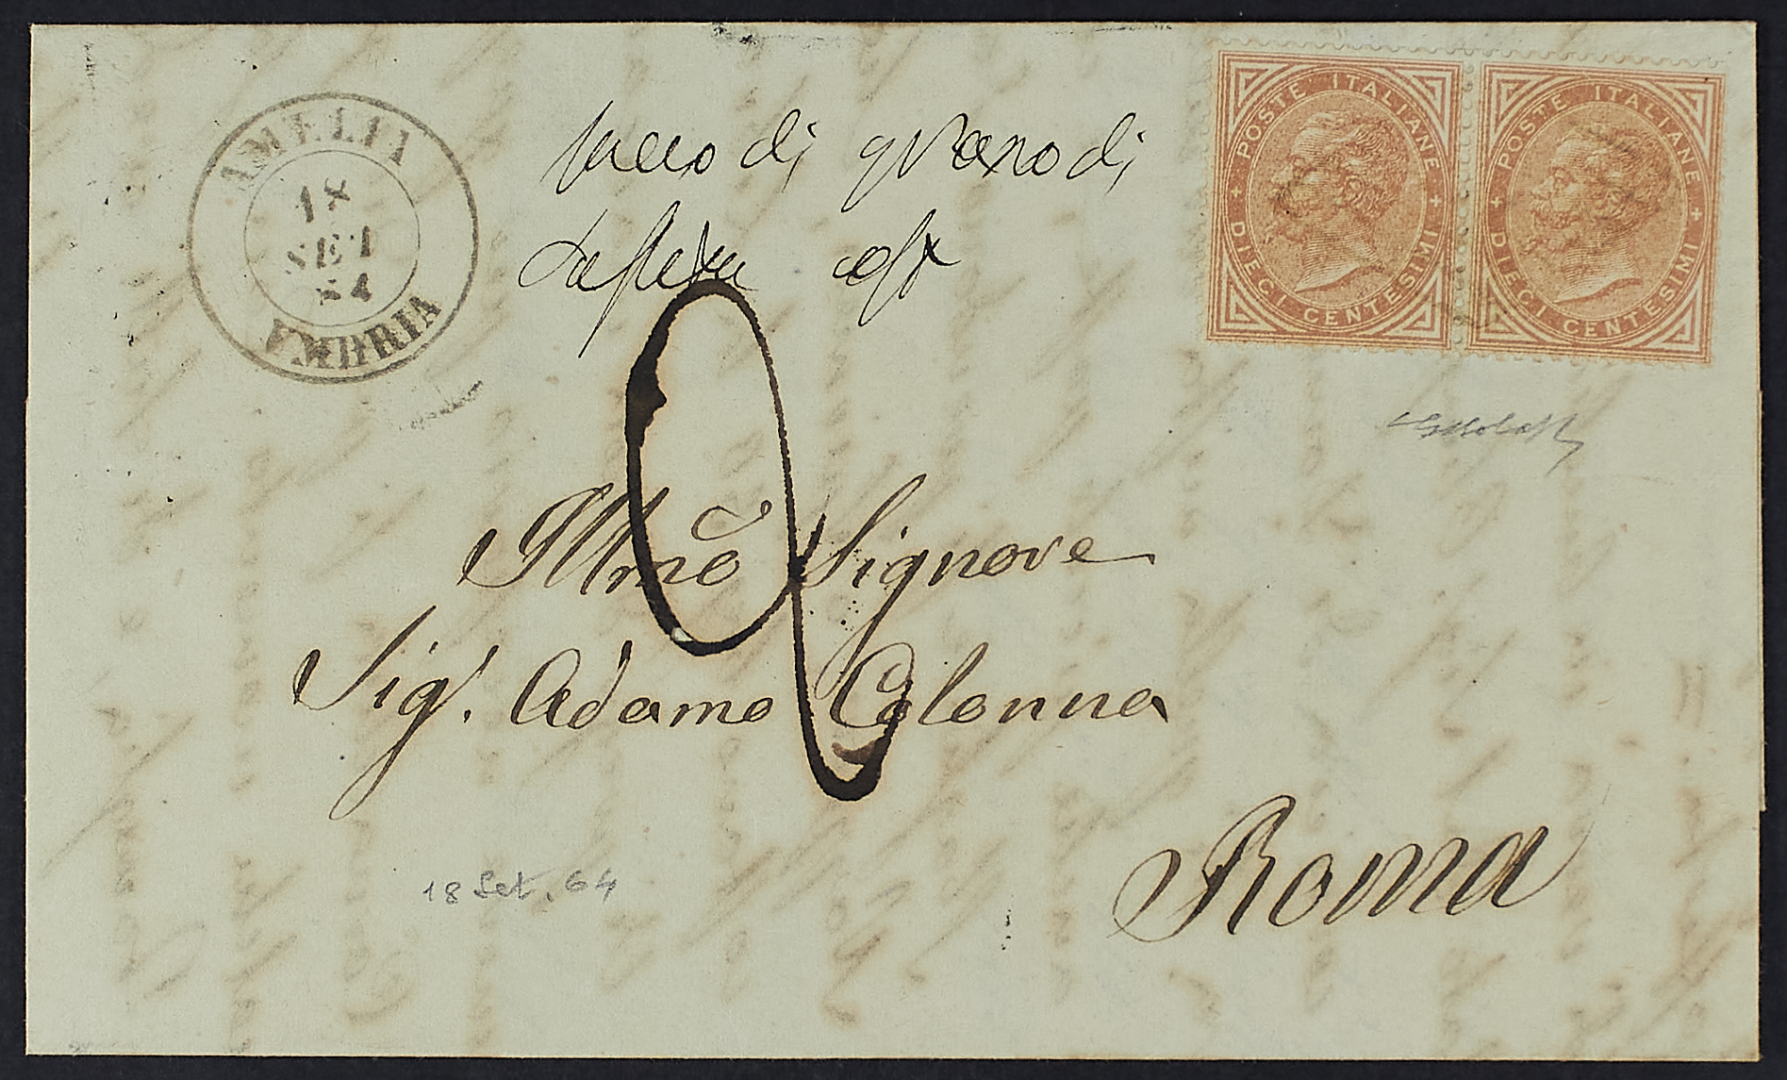 AMELIA
18
SET
64
UMBRIA
di grano di
POSTE ITALIANE
DIECI CENTESIMI
POSTE ITALIANE
DIECI CENTESIMI
2
Illmo Signore
Sig. Adamo Colonna
Roma
18 Set. 64